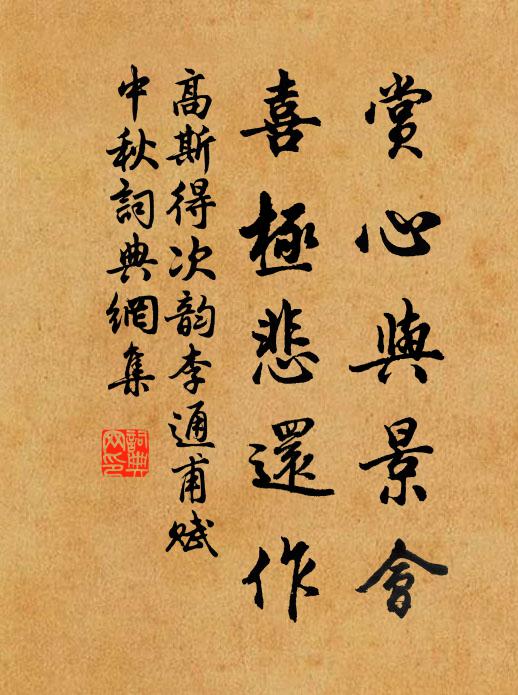 賞心與景會
喜極悲還作
高斯得次韵李通甫賦
中秋詞典網集
詞典網印